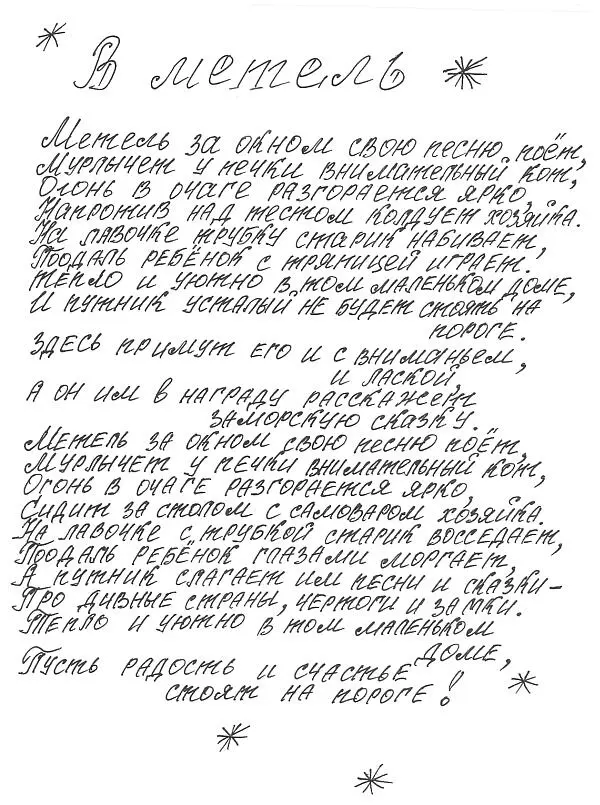 В метель
Метель за окном свою песню поёт,
Мурлычет у печки внимательный кот,
Огонь в очаге разгорается ярко,
Напротив над тестом колдует хозяйка.
На лавочке трубку старик набивает,
Поодаль ребёнок с тряпицей играет.
Тепло и уютно в том маленьком доме,
И путник усталый не будет стоять на
пороге.
Здесь примут его и с вниманьем,
и лаской,
А он им в награду расскажет
заморскую сказку.
Метель за окном свою песню поёт,
Мурлычет у печки внимательный кот,
Огонь в очаге разгорается ярко,
Сидит за столом с самоваром хозяйка.
На лавочке с трубкой старик восседает,
Поодаль ребёнок глазами моргает,
А путник слагает им песни и сказки –
Про дивные страны, чертоги и замки.
Тепло и уютно в том маленьком
доме,
Пусть радость и счастье
стоят на пороге!